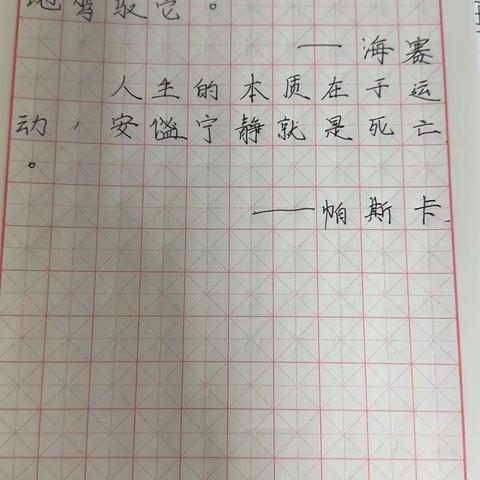 地驾驭它。
——海赛
人生的本质在于运
动，安谧宁静就是死亡
。
——帕斯卡